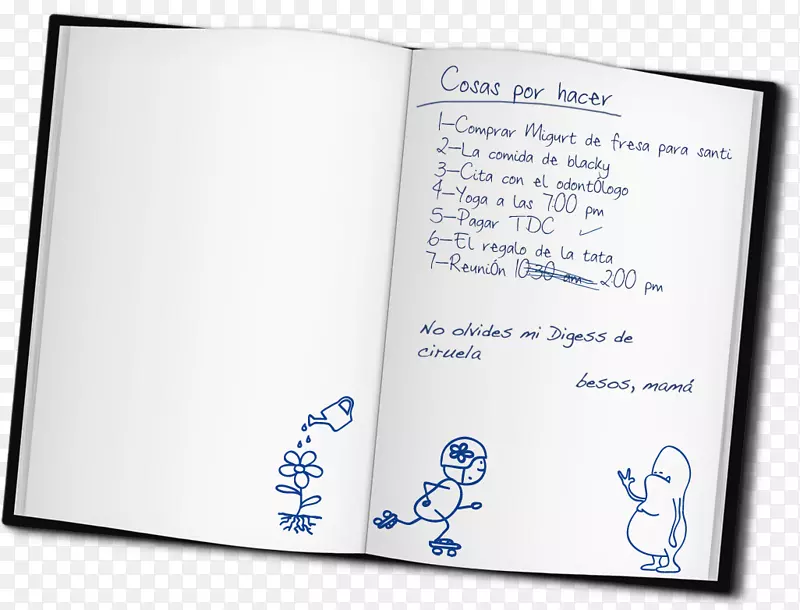 Cosas por hacer
1-Comprar Migurt de fresa para santi
2-La comida de blacky
3-Cita con el odontÓlogo
4-Yoga a las 7:00 pm
5-Pagar TDC ✓
6-El regalo de la tata
7-ReuniÓn 10:30 am 2:00 pm
No olvides mi Digess de
ciruela
besos, mamá